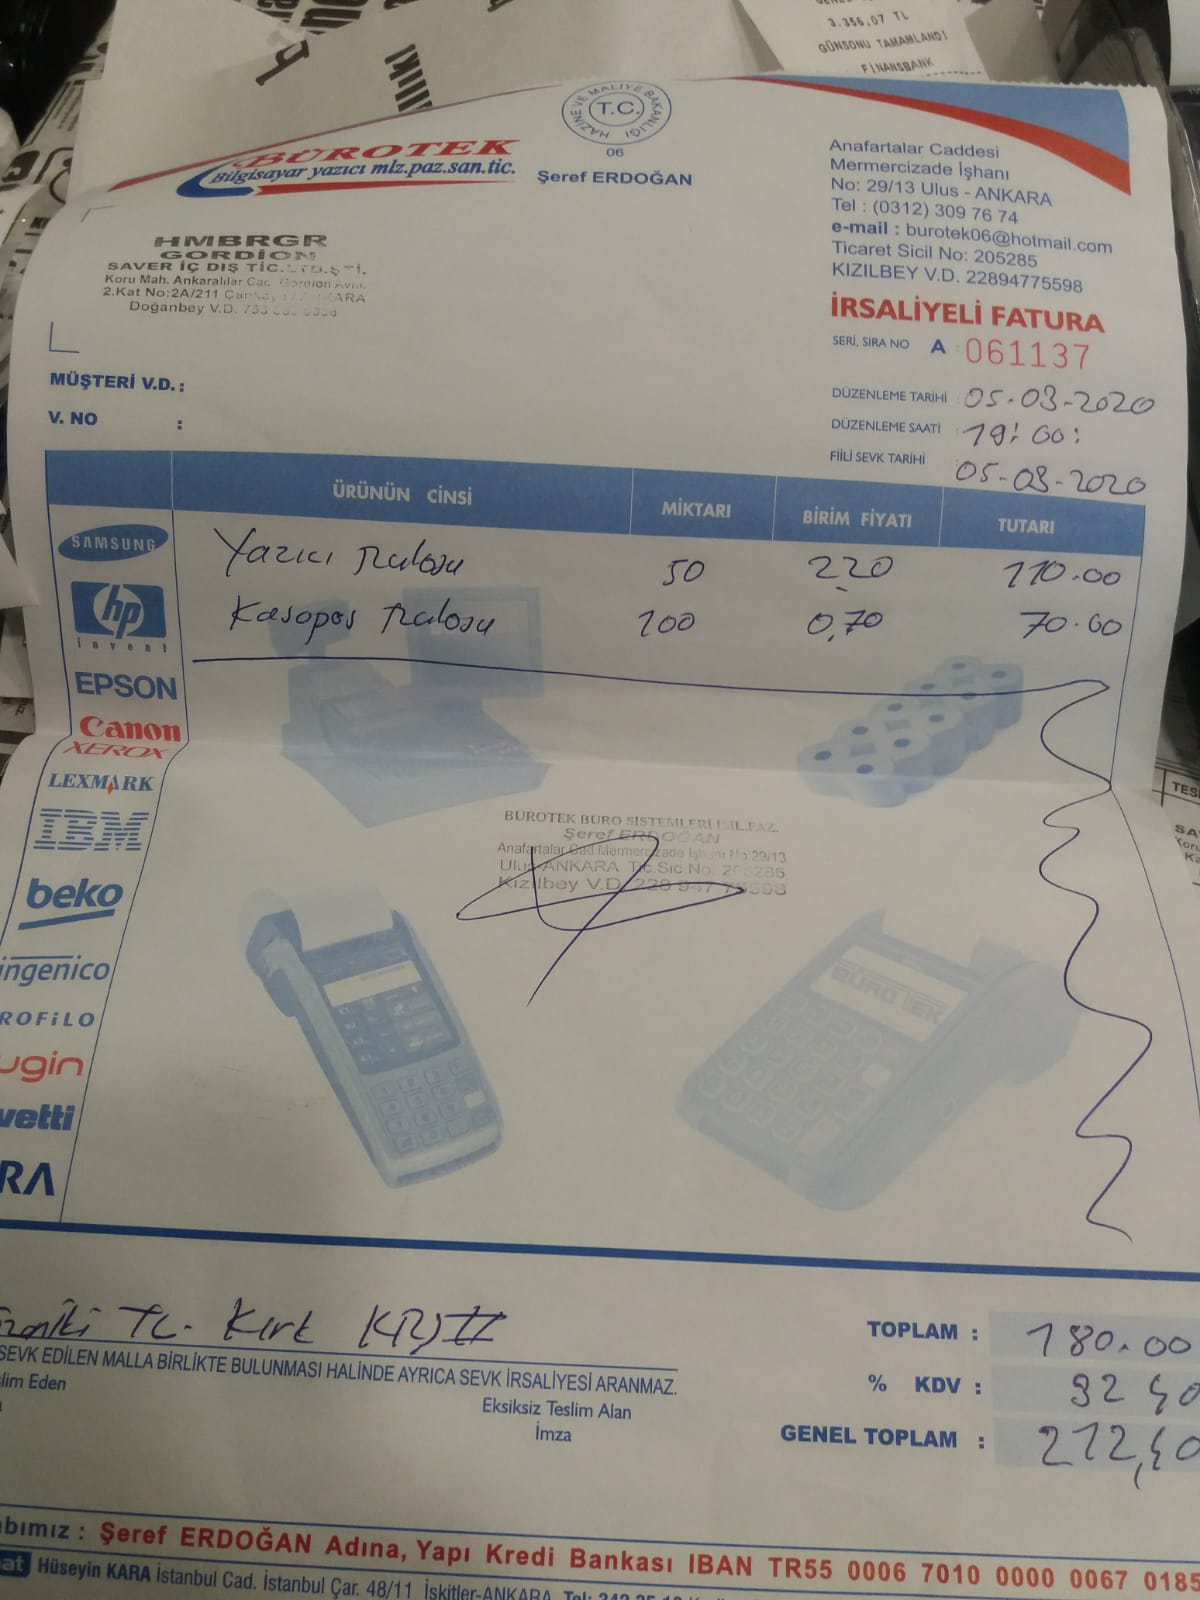 3.356,07 TL
GÜNSONU TAMAMLANDI
FİNANSBANK
T.C. HAZİNE VE MALİYE BAKANLIĞI
06
Şeref ERDOĞAN
BÜROTEK
Bilgisayar yazıcı mlz.paz.san.tic.
Anafartalar Caddesi
Mermercizade İşhanı
No: 29/13 Ulus - ANKARA
Tel : (0312) 309 76 74
e-mail : burotek06@hotmail.com
Ticaret Sicil No: 205285
KIZILBEY V.D. 22894775598
HMBRGR
GORDİON
SAVER İÇ DIŞ TİC.LTD.ŞTİ.
Koru Mah. Ankaralılar Cad. Gordion Avm.
2.Kat No:2A/211
Doğanbey V.D.
İRSALİYELİ FATURA
SERİ, SIRA NO A 061137
MÜŞTERİ V.D. :
V. NO :
DÜZENLEME TARİHİ : 05-03-2020
DÜZENLEME SAATİ 19:00:
FİİLİ SEVK TARİHİ 05-03-2020
ÜRÜNÜN CİNSİ MİKTARI BİRİM FİYATI TUTARI
Yazıcı rulosu 50 220 110.00
Kasopos rulosu 100 0,70 70.00
SAMSUNG
hp
invent
EPSON
Canon
XEROX
LEXMARK
IBM
beko
ingenico
ROFiLO
ugin
vetti
RA
BÜROTEK BÜRO SİSTEMLERİ
Şeref ERDOĞAN
Anafartalar Cad Mermercizade İşhanı No:29/13
Ulus-ANKARA Tic.Sic.No: 205285
Kızılbey V.D. 228 947 75598
BÜROTEK
oniki TL. Kırk KRŞ
SEVK EDİLEN MALLA BİRLİKTE BULUNMASI HALİNDE AYRICA SEVK İRSALİYESİ ARANMAZ.
lim Eden
Eksiksiz Teslim Alan
İmza
TOPLAM : 180.00
% KDV : 32 40
GENEL TOPLAM : 212,40
bımız : Şeref ERDOĞAN Adına, Yapı Kredi Bankası IBAN TR55 0006 7010 0000 0067 0185
at Hüseyin KARA İstanbul Cad. İstanbul Çar. 48/11 İskitler-ANKARA